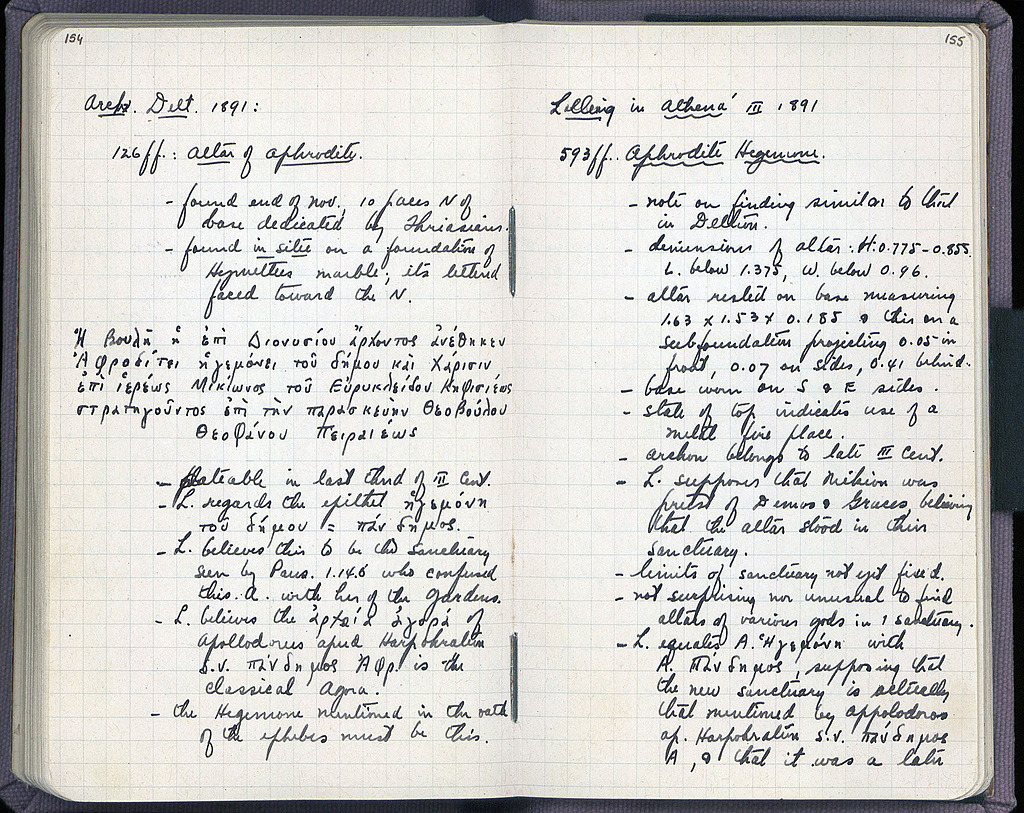 154
Arch. Delt. 1891:
126ff.: altar of Aphrodite.
- found end of Nov. 10 paces N of
base dedicated by Thriasians.
- found in situ on a foundation of
Hymettus marble; its behind
faced toward the N.
Ἡ Βουλὴ ἡ ἐπὶ Διονυσίου ἄρχοντος ἀνέθηκεν
Ἀφροδίτει ἡγεμόνει τοῦ δήμου καὶ Χάρισιν
ἐπὶ ἱερέως Μικίωνος τοῦ Εὐρυκλείδου Κηφισιέως
στρατηγοῦντος ἐπὶ τὴν παρασκευὴν Θεοβούλου
Θεοφάνου Πειραιέως
- dateable in last third of III cent.
- L. regards the epithet ἡγεμόνη
τοῦ δήμου = πάνδημος.
- L. believes this to be the Sanctuary
seen by Paus. 1.14.6 who confused
this A. with her of the Gardens.
- L. believes the ἀρχαία ἀγορά of
Apollodorus apud Harpokration
s.v. πάνδημος Ἀφρ. is the
classical Agora.
- the Hegemone mentioned in the oath
of the ephebes must be this.
155
Lolling in Athena' III 1891
593ff. Aphrodite Hegemone.
- note on finding similar to that
in Deltion.
- dimensions of altar: H: 0.775-0.855.
L. below 1.375, W. below 0.96.
- altar rested on base measuring
1.63 x 1.53 x 0.185 & this on a
subfoundation projecting 0.05 in
front, 0.07 on sides, 0.41 behind.
- base worn on S & E sides.
- state of top indicates use of a
metal fire place.
- archon belongs to late III cent.
- L. supposes that Mikion was
priest of Demos & Graces, believing
that the altar stood in their
sanctuary.
- limits of sanctuary not yet fixed.
- not surprising nor unusual to find
altars of various gods in 1 sanctuary.
- L. equates A. Ἡγεμόνη with
A. πάνδημος, supposing that
the new sanctuary is actually
that mentioned by Appolodoros
ap. Harpokration s.v. πάνδημος
A, & that it was a later